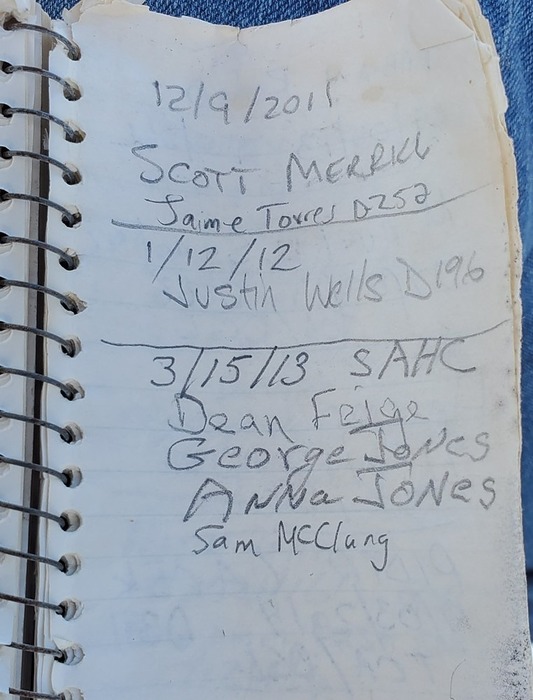 12/9/2011
SCOTT MERRICK
Jaime Torres D-252
1/12/12
Justin Wells D196
3/15/13 SAHC
Dean Feige
George Jones
ANNa JONes
Sam McClung